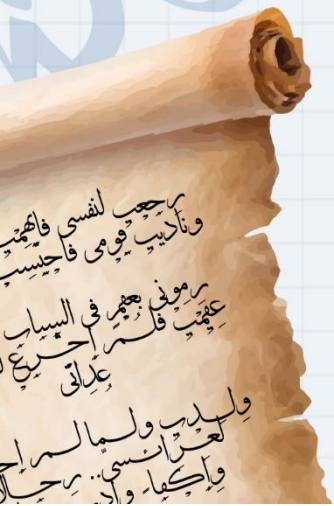 رجعت لنفسي فاتهمت
وناديت قومي فاحتسبت
رموني بعقم في الشباب
عقمت فلم اجزع
عداتي
ولدت ولما لم
لعرائسي.. رجالا
واكفاء